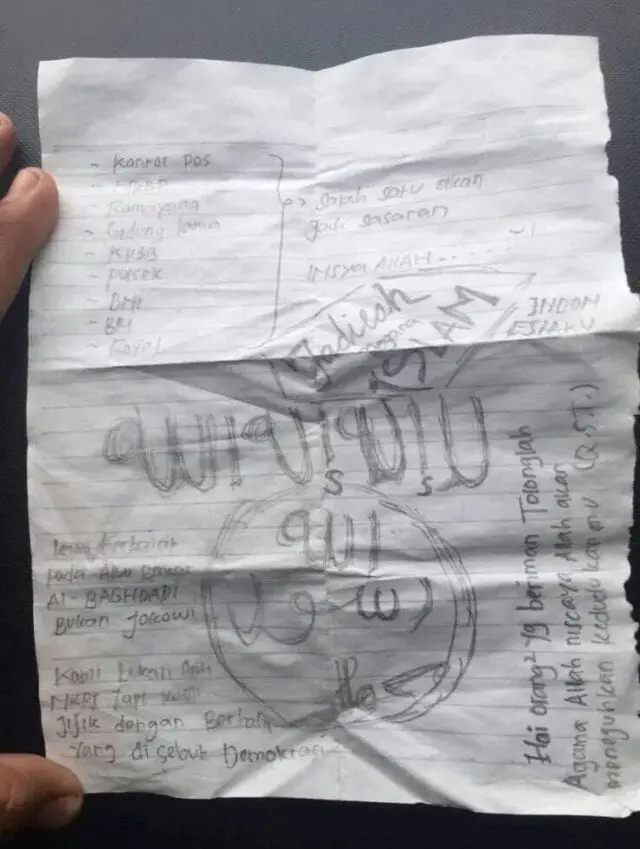 ~ Kantor Pos
- Ramayana
- Gedung
- Polsek
- BNI
- BRI
Salah satu akan
jadi sasaran
INSYA ALLAH.....
Jadilah
negara
ISLAM
INDON
ESIAKU
لا اله الا الله
الله
رسول
محمد
berbaiat
pada Abu Bakar
Al-BAGHDADI
Bukan Jokowi
Kami bukan Anti
NKRI Tapi kami
Jijik dengan Berhala
Yang di sebut Demokrasi
Hai orang² yg beriman Tolonglah
Agama Allah niscaya Allah akan
meneguhkan kedudukanmu